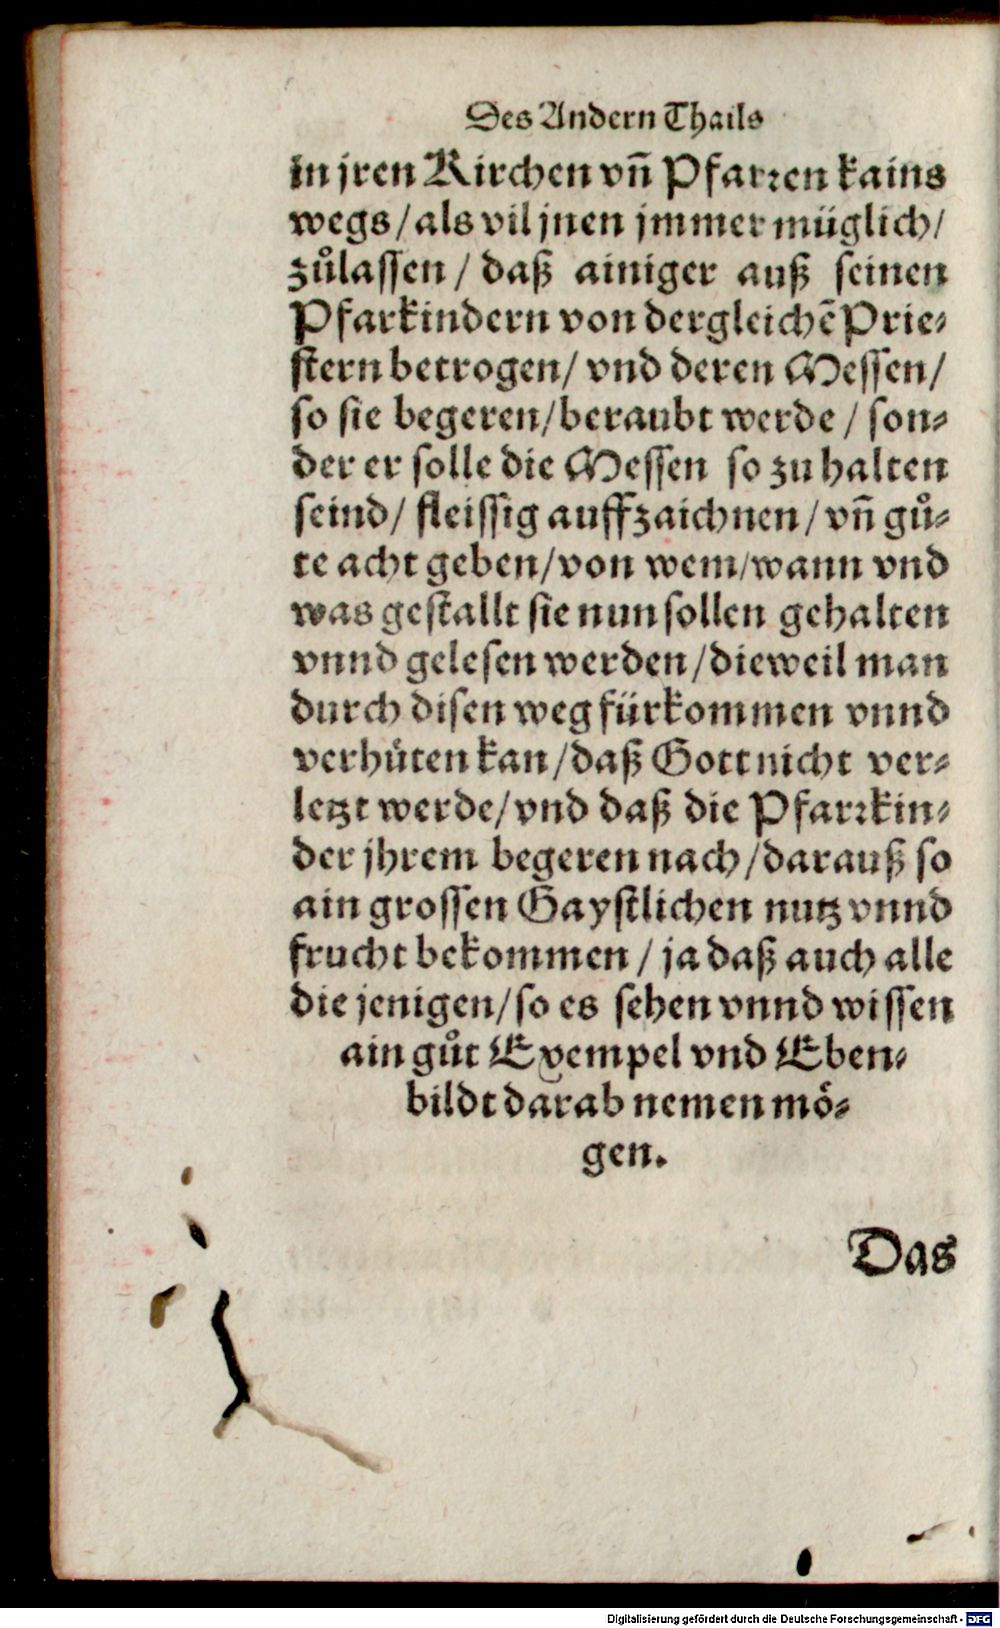 Des Andern Thails
in jren Kirchen vñ Pfarꝛen kains
wegs / als vil jnen jmmer müglich /
zůlassen / daß ainiger auß seinen
Pfarkindern von dergleichẽ Prie-
stern betrogen / vnd deren Messen /
so sie begeren / beraubt werde / son-
der er solle die Messen so zu halten
seind / fleissig auffzaichnen / vñ gů-
te acht geben / von wem / wann vnd
was gestallt sie nun sollen gehalten
vnnd gelesen werden / dieweil man
durch disen weg fürkommen vnnd
verhüten kan / daß Gott nicht ver-
letzt werde / vnd daß die Pfarꝛkin-
der jhrem begeren nach / darauß so
ain grossen Gaystlichen nutz vnnd
frucht bekommen / ja daß auch alle
die jenigen / so es sehen vnnd wissen
ain gůt Exempel vnd Eben-
bildt darab nemen mö-
gen.
Das
Digitalisierung gefördert durch die Deutsche Forschungsgemeinschaft - DFG